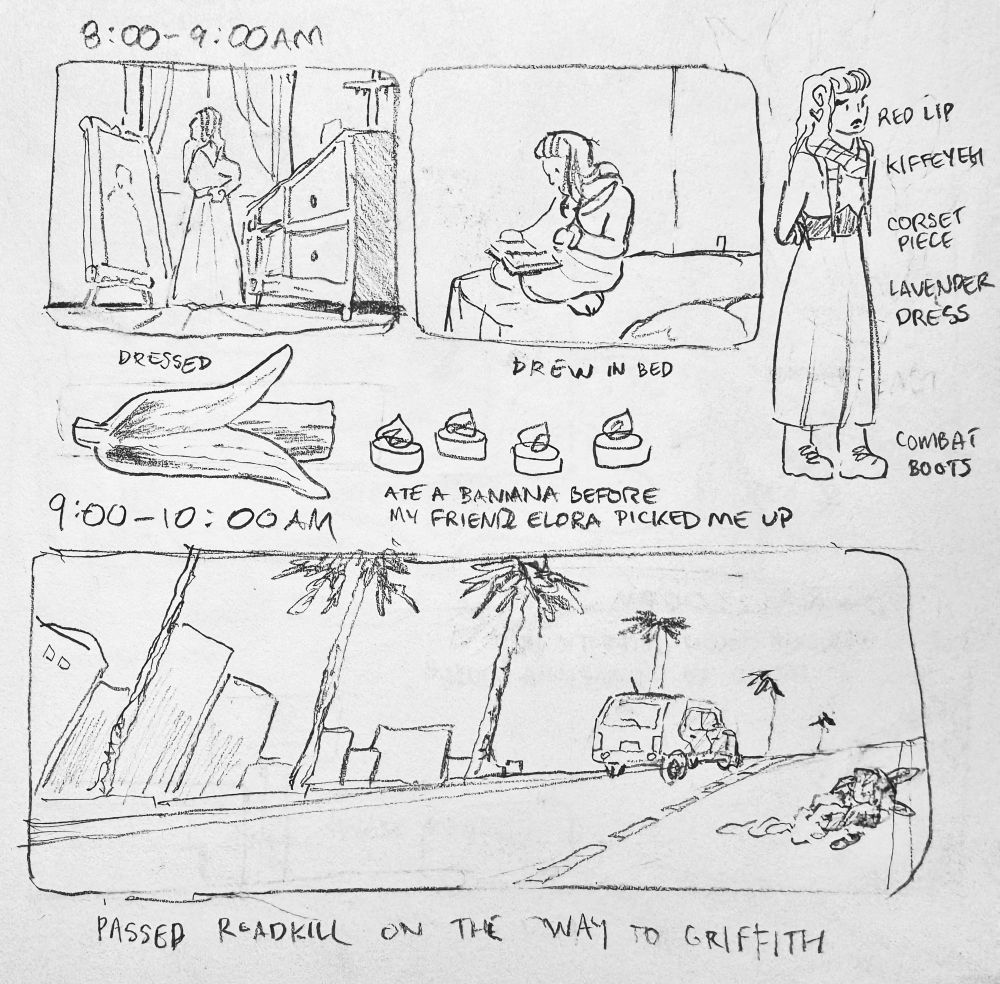 8:00-9:00AM
RED LIP
KIFFEYEH
CORSET
PIECE
LAVENDER
DRESS
COMBAT
BOOTS
DRESSED
DREW IN BED
ATE A BANANA BEFORE
MY FRIEND ELORA PICKED ME UP
9:00-10:00AM
PASSED ROADKILL ON THE WAY TO GRIFFITH